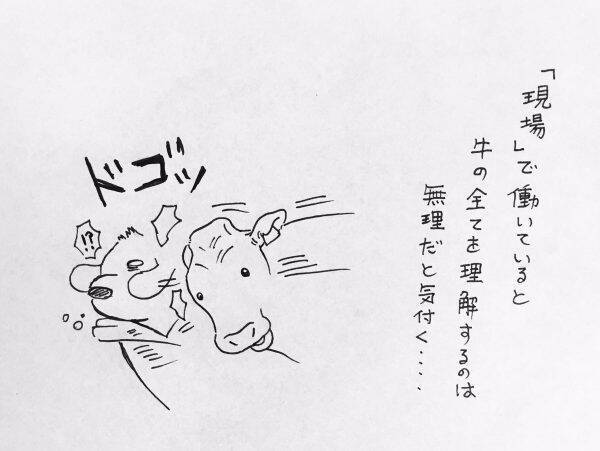 「現場」で働いていると
牛の全てを理解するのは
無理だと気付く‥‥
ドゴッ
!?